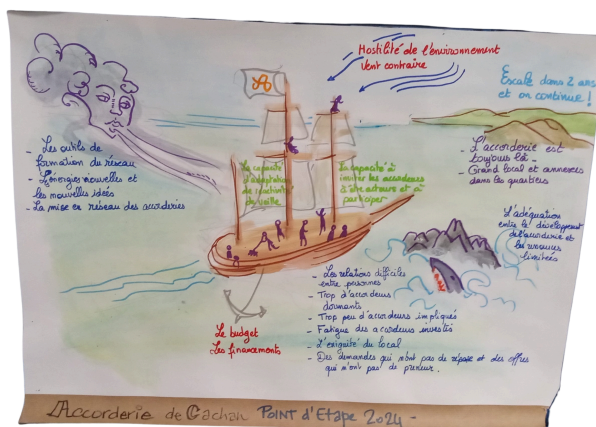 Hostilité de l'environnement
Vent contraire
Escale dans 2 ans
et on continue !
- Les outils de
formation du réseau
- L'énergies nouvelles et
les nouvelles idées
- La mise en réseau des accorderies
La capacité
d'adaptation
de réactivité
de veille
La capacité à
inviter les accordeurs
à être acteurs et à
participer
- L'accorderie est
toujours là -
- Grand local et annexes
dans les quartiers
L'adéquation
entre le développement
de l'accorderie et
les
limitées
- Les relations difficiles
entre personnes
- Trop d'accordeurs
dormants
- Trop peu d'accordeurs impliqués
- Fatigue des accordeurs investis
- L'exiguïté du local
- Des demandes qui n'ont pas de réponse et des offres
qui n'ont pas de preneur.
Le budget
Les financements
Accorderie de Cachan POINT d'Etape 2024 -